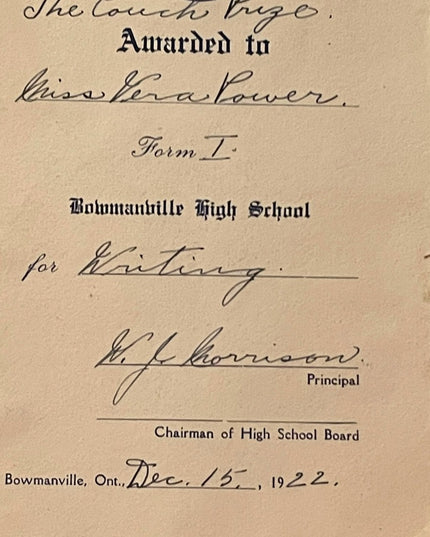 The Couch Prize.
Awarded to
Miss Vera Power.
Form I.
Bowmanville High School
for Writing.
W. J. Morrison.
Principal
Chairman of High School Board
Bowmanville, Ont., Dec. 15, 1922.